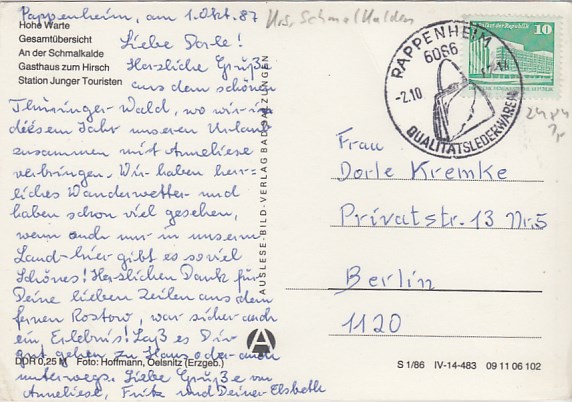 Pappenheim, am 1. Okt. 87
Krs. Schmalkalden
Hohe Warte
Gesamtübersicht
An der Schmalkalde
Gasthaus zum Hirsch
Station Junger Touristen
Liebe Dorle!
Herzliche Grüße
aus dem schönen
Thüringer Wald, wo wir in
diesem Jahr unseren Urlaub
zusammen mit Anneliese
verbringen. Wir haben herr-
liches Wanderwetter und
haben schon viel gesehen,
wenn auch nur in unserem
Land - hier gibt es so viel
Schönes! Herzlichen Dank für
Deine lieben Zeilen aus dem
fernen Rostow, war sicher auch
ein Erlebnis! Laß es Dir
gut gehen zu Haus oder auch
unterwegs. Liebe Grüße von
Anneliese, Fritz und Deiner Elsbeth
DDR 0,25 M Foto: Hoffmann, Oelsnitz (Erzgeb.)
AUSLESE-BILD-VERLAG BAD SALZUNGEN
A
PAPPENHEIM
6086
-2.10
QUALITÄTSLEDERWAREN
10
Frau
Dorle Kremke
Privatstr. 13 Nr. 5
Berlin
1120
S 1/86 IV-14-483 09 11 06 102